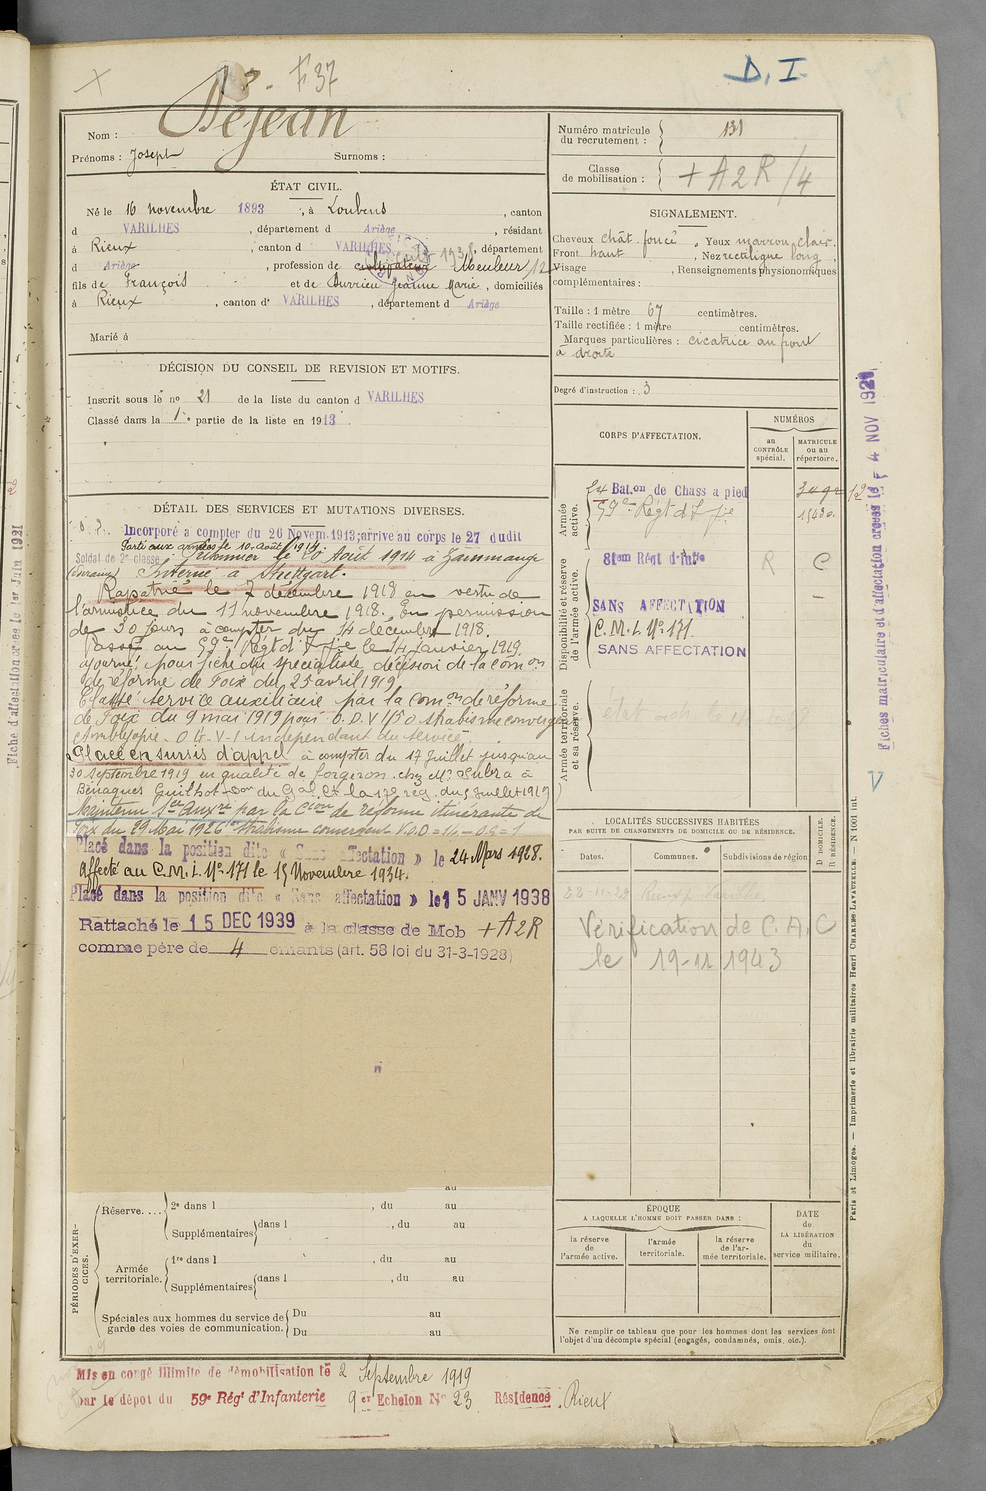 F 37
D. I.
Nom : Dejean
Prénoms : Joseph Surnoms :
ÉTAT CIVIL.
Né le 16 novembre 1893, à Loubens, canton
d VARILHES, département d Ariège, résidant
à Rieux, canton d VARILHES, département
d Ariège, profession de cultivateur Meuleur
fils de François et de Durrieu Jeanne Marie, domiciliés
à Rieux, canton d VARILHES, département d Ariège
Marié à
DÉCISION DU CONSEIL DE REVISION ET MOTIFS.
Inscrit sous le nº 21 de la liste du canton d VARILHES
Classé dans la 1e partie de la liste en 1913.
DÉTAIL DES SERVICES ET MUTATIONS DIVERSES.
Incorporé à compter du 26 Novem. 1913; arrivé au corps le 27 dudit
Parti aux armées le 10 août 1914
Soldat de 2e classe Prisonnier le 20 Août 1914 à
Interné à Stuttgart.
Rapatrié le 7 décembre 1918 en vertu de
l'armistice du 11 novembre 1918. En permission
de 30 jours à compter du 14 décembre 1918.
Passé au 59e Régt d'Ifie le 14 janvier 1919.
ajourné pour fiche du spécialiste décision de la Comon
de réforme de Foix du 25 avril 1919
Classé service auxiliaire par la Comon de réforme
de Foix du 9 mai 1919 pour O.D.V. strabisme convergent
amblyopie O.G.V-1 indépendant du service.
Placé en sursis d'appel à compter du 17 juillet jusqu'au
30 septembre 1919 en qualité de forgeron chez Mr Subra à
Bénagues Guilhot Don du Gal Ct la 17e rég. du 5 juillet 1919
Maintenu Sce Auxre par la Cion de réforme itinérante de
Foix du 29 Mai 1926 strabisme convergent V.O.D = 1/4 - O.G = 1
Placé dans la position dite « Sans affectation » le 24 Mars 1928.
Affecté au C.M.I. Nº 171 le 15 Novembre 1934.
Placé dans la position dite « Sans affectation » le 15 JANV 1938
Rattaché le 15 DEC 1939 à la classe de Mob + A2R
comme père de 4 enfants (art. 58 loi du 31-3-1928)
PÉRIODES D'EXERCICES.
Réserve....
2e dans l , du au
Supplémentaires dans l , du au
Armée territoriale.
1re dans l , du au
Supplémentaires dans l , du au
Spéciales aux hommes du service de garde des voies de communication.
Du au
Du au
Mis en congé illimité de démobilisation le 2 Septembre 1919
par le dépôt du 59e Régt d'Infanterie 9er Echelon Nº 23 Résidence Rieux
Numéro matricule du recrutement : 131
Classe de mobilisation : + A2R/4
SIGNALEMENT.
Cheveux chât. foncé, Yeux marron clair.
Front haut, Nez rectiligne long,
Visage , Renseignements physionomiques
complémentaires :
Taille : 1 mètre 67 centimètres.
Taille rectifiée : 1 mètre centimètres.
Marques particulières : cicatrice au front
à droite
Degré d'instruction : 3
CORPS D'AFFECTATION.
NUMÉROS
au CONTRÔLE spécial.
MATRICULE ou au répertoire.
Armée active.
24 Bat.on de Chass a pied
59e Régt d'Ifie
Disponibilité et réserve de l'armée active.
81em Régt d'Infie R C
SANS AFFECTATION
C.M.I. Nº 171
SANS AFFECTATION
Armée territoriale et sa réserve.
LOCALITÉS SUCCESSIVES HABITÉES
PAR SUITE DE CHANGEMENTS DE DOMICILE OU DE RÉSIDENCE.
Dates. Communes. Subdivisions de région.
D DOMICILE. R RÉSIDENCE.
Vérification de C.A.C
le 19-11 1943
ÉPOQUE
A LAQUELLE L'HOMME DOIT PASSER DANS :
la réserve de l'armée active.
l'armée territoriale.
la réserve de l'armée territoriale.
DATE de LA LIBÉRATION du service militaire.
Ne remplir ce tableau que pour les hommes dont les services font
l'objet d'un décompte spécial (engagés, condamnés, omis, etc.).
Fiches matriculaire et d'affectation créées le 4 NOV 1921
Paris et Limoges. — Imprimerie et librairie militaires Henri CHARLES-LAVAUZELLE. — N 1001 int.
Fiche d'affectation créée le 1er Juin 1921